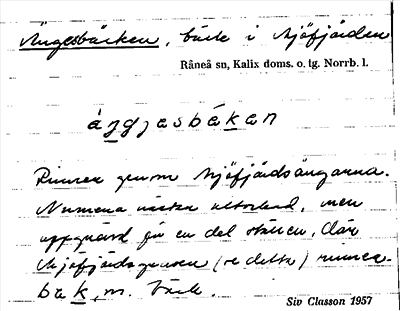 Ängesbäcken, bäck i Mjöfjärden
Råneå sn, Kalix doms. o. tg. Norrb. l.
áŋgjasbákan
Rinner genom Mjöfjärdsängarna.
Numera nästan uttorkad, men
uppgrävd på en del ställen, där
Mjöfjärdsgruven (se detta) rinner.
bäk, m. bäck.
Siv Classon 1957